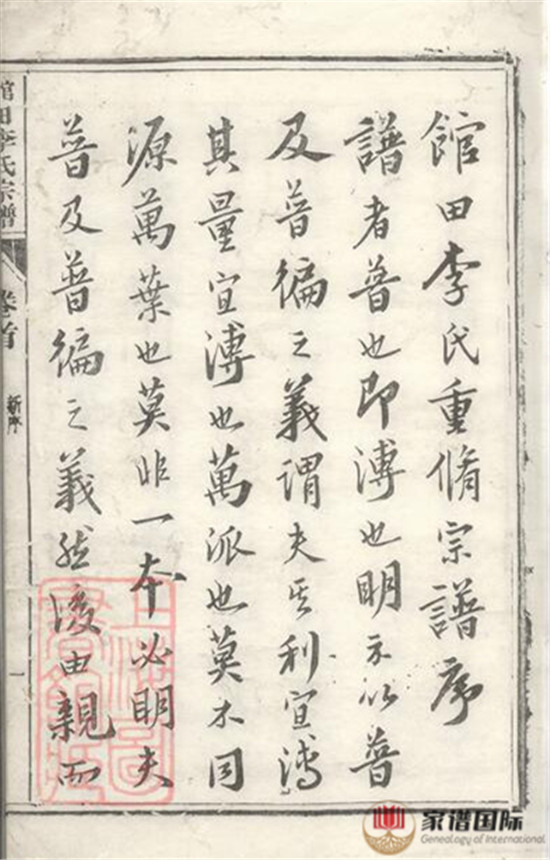 館田李氏重脩宗譜序
譜者普也即溥也明示以普
及普徧之義謂夫其利宜溥
其量宜溥也萬派也莫不同
源萬葉也莫非一本必明夫
普及普徧之義然後由親而
館田李氏宗譜
卷首
新序
一
家谱国际
Genealogy of International